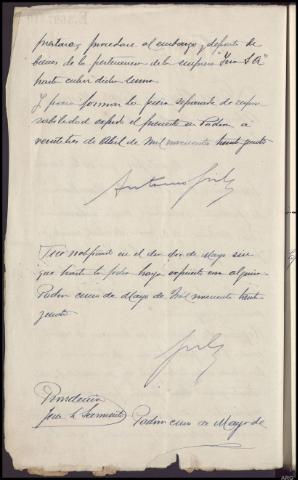 prestara, procedase al embargo y deposito de
bienes de la pertenencia de la empresa "Iris S.A"
hasta cubrir dicha suma.
Y para formar la pieza separada de respon
sabilidad expido el presente en Padron, a
veintitres de Abril de mil novecientos treinta
Antonio
notificado en el dia dos de Mayo sin
que hasta la fecha haya expuesto cosa alguna.
Padron cinco de Mayo de Mil novecientos trein
Providencia
Juez Sr Sarmiento
Padron cinco de Mayo de